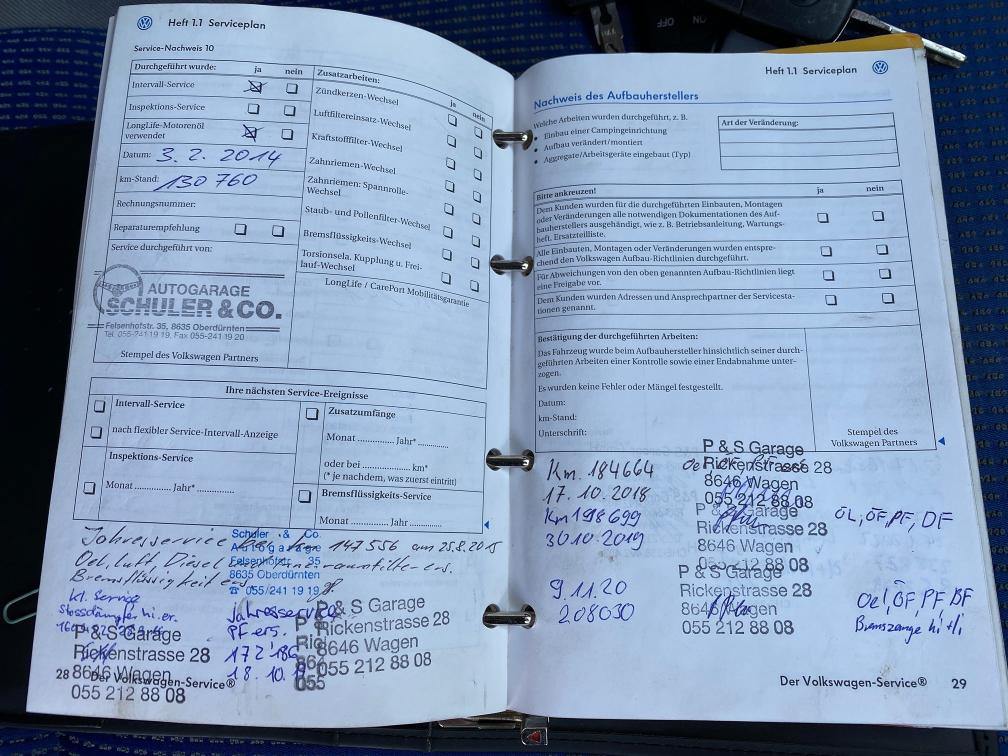 Heft 1.1 Serviceplan
Service-Nachweis 10
Durchgeführt wurde: ja nein
Intervall-Service
Inspektions-Service
LongLife-Motorenöl
verwendet
Datum: 3. 2. 2014
km-Stand: 130 760
Rechnungsnummer:
Reparaturempfehlung
Service durchgeführt von:
AUTOGARAGE
SCHULER & CO.
Felsenhofstr. 35, 8635 Oberdürnten
Tel. 055-241 19 19, Fax 055-241 19 20
Stempel des Volkswagen Partners
Zusatzarbeiten: ja nein
Zündkerzen-Wechsel
Luftfiltereinsatz-Wechsel
Kraftstofffilter-Wechsel
Zahnriemen-Wechsel
Zahnriemen: Spannrolle-
Wechsel
Staub- und Pollenfilter-Wechsel
Bremsflüssigkeits-Wechsel
Torsionsela. Kupplung u. Frei-
lauf-Wechsel
LongLife / CarePort Mobilitätsgarantie
Ihre nächsten Service-Ereignisse
Intervall-Service
nach flexibler Service-Intervall-Anzeige
Inspektions-Service
Monat .............. Jahr* ..............
Zusatzumfänge
Monat .............. Jahr* ............
oder bei .................... km*
(* je nachdem, was zuerst eintritt)
Bremsflüssigkeits-Service
Monat .............. Jahr ..............
Jahresservice 147556 am 25.8.2015
Oel, Luft, Diesel
Bremsflüssigkeit ers.
Schuler & Co.
Autogarage
Felsenhofstr. 35
8635 Oberdürnten
☎ 055/241 19 19
Kl. Service
Stossdämpfer hi. er.
P & S Garage
Rickenstrasse 28
8646 Wagen
055 212 88 08
Jahresservice
PF ers.
172'186
18.10.
P & S Garage
Rickenstrasse 28
8646 Wagen
055 212 88 08
28 Der Volkswagen-Service®
Heft 1.1 Serviceplan
Nachweis des Aufbauherstellers
Welche Arbeiten wurden durchgeführt, z. B.
• Einbau einer Campingeinrichtung
• Aufbau verändert/montiert
• Aggregate/Arbeitsgeräte eingebaut (Typ)
Art der Veränderung:
Bitte ankreuzen! ja nein
Dem Kunden wurden für die durchgeführten Einbauten, Montagen
oder Veränderungen alle notwendigen Dokumentationen des Auf-
bauherstellers ausgehändigt, wie z. B. Betriebsanleitung, Wartungs-
heft, Ersatzteilliste.
Alle Einbauten, Montagen oder Veränderungen wurden entspre-
chend den Volkswagen Aufbau-Richtlinien durchgeführt.
Für Abweichungen von den oben genannten Aufbau-Richtlinien liegt
eine Freigabe vor.
Dem Kunden wurden Adressen und Ansprechpartner der Servicesta-
tionen genannt.
Bestätigung der durchgeführten Arbeiten:
Das Fahrzeug wurde beim Aufbauhersteller hinsichtlich seiner durch-
geführten Arbeiten einer Kontrolle sowie einer Endabnahme unter-
zogen.
Es wurden keine Fehler oder Mängel festgestellt.
Datum:
km-Stand:
Unterschrift:
Stempel des
Volkswagen Partners
Km. 184664
17. 10. 2018
P & S Garage
Rickenstrasse 28
8646 Wagen
055 212 88 08
Km 198699
30 10. 2019
P & S Garage
Rickenstrasse 28
8646 Wagen
055 212 88 08
ÖL, ÖF, PF, DF
9.11.20
208030
P & S Garage
Rickenstrasse 28
8646 Wagen
055 212 88 08
Oel, ÖF, PF BF
Bremszange hi + li
Der Volkswagen-Service® 29